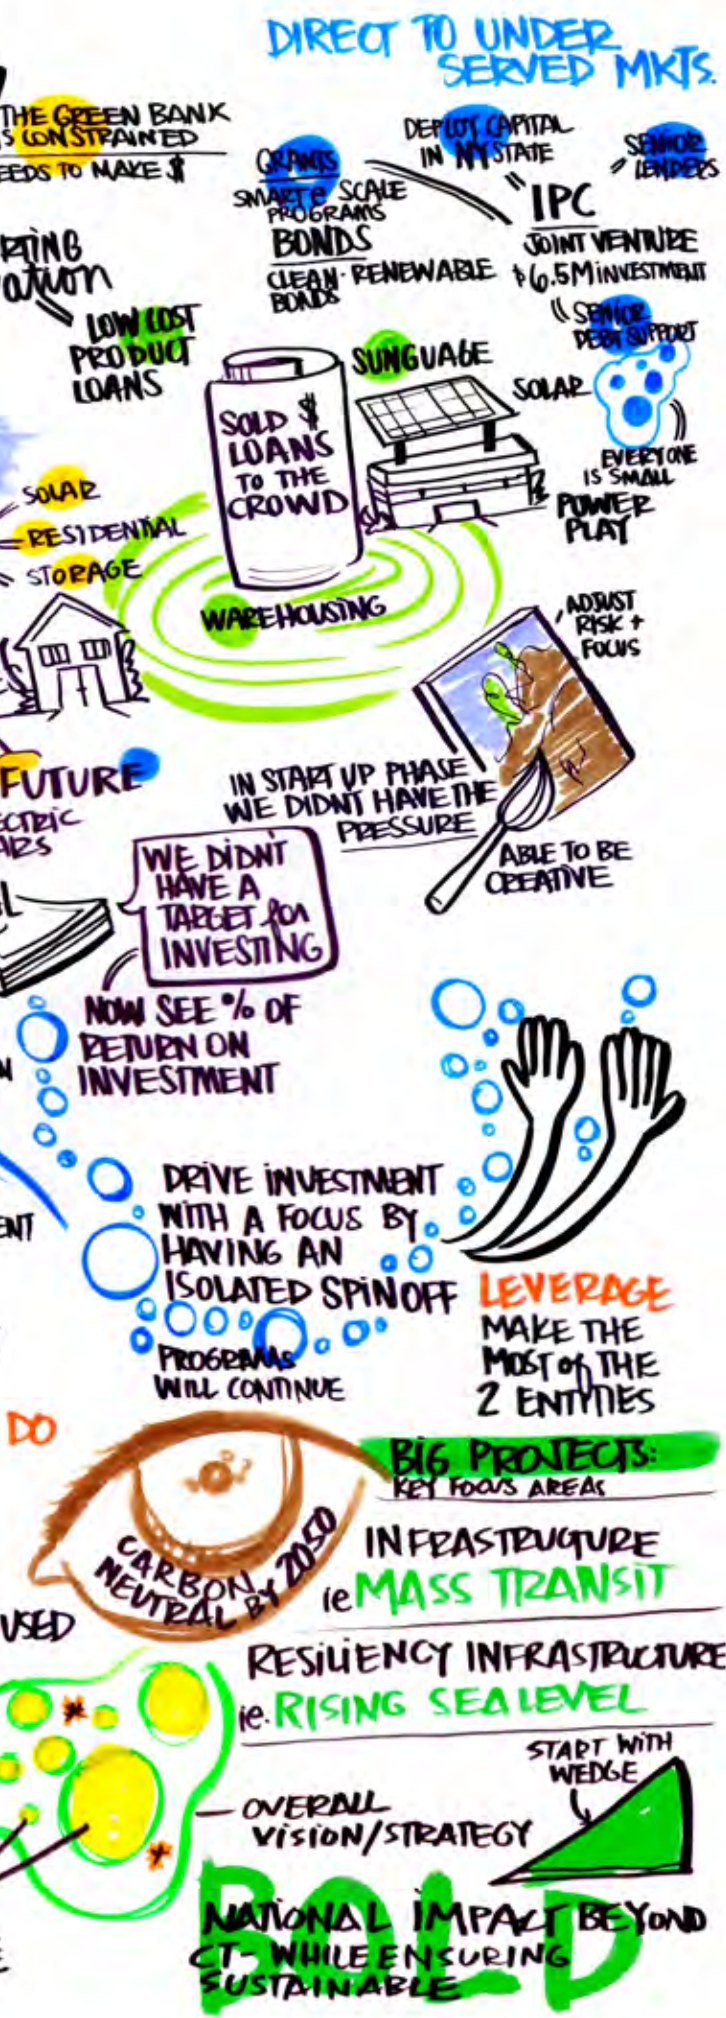 DIRECT TO UNDER
SERVED MKTS.
THE GREEN BANK
IS CONSTRAINED
EEDS TO MAKE $
GRANTS
SMART e SCALE
PROGRAMS
BONDS
CLEAN-RENEWABLE
BONDS
DEPLOY CAPITAL
IN NY STATE
IPC
JOINT VENTURE
$6.5M INVESTMENT
SENIOR
LENDERS
SENIOR
DEBT SUPPORT
RTING
ation
LOW COST
PRODUCT
LOANS
SOLD $
LOANS
TO THE
CROWD
SUNGUAGE
SOLAR
EVERYONE
IS SMALL
POWER
PLAY
SOLAR
RESIDENTIAL
STORAGE
WAREHOUSING
ADJUST
RISK +
FOCUS
FUTURE
ECTRIC
ARS
IN START UP PHASE
WE DIDNT HAVE THE
PRESSURE
ABLE TO BE
CREATIVE
WE DIDNT
HAVE A
TARGET for
INVESTING
NOW SEE % OF
RETURN ON
INVESTMENT
DRIVE INVESTMENT
WITH A FOCUS BY
HAVING AN
ISOLATED SPINOFF
PROGRAMS
WILL CONTINUE
ENT
LEVERAGE
MAKE THE
MOST of THE
2 ENTITIES
DO
CARBON
NEUTRAL BY 2050
USED
BIG PROJECTS:
KEY FOCUS AREAS
INFRASTRUCTURE
ie MASS TRANSIT
RESILIENCY INFRASTRUCTURE
ie. RISING SEA LEVEL
START WITH
WEDGE
OVERALL
VISION/STRATEGY
BOLD
NATIONAL IMPACT BEYOND
CT - WHILE ENSURING
SUSTAINABLE